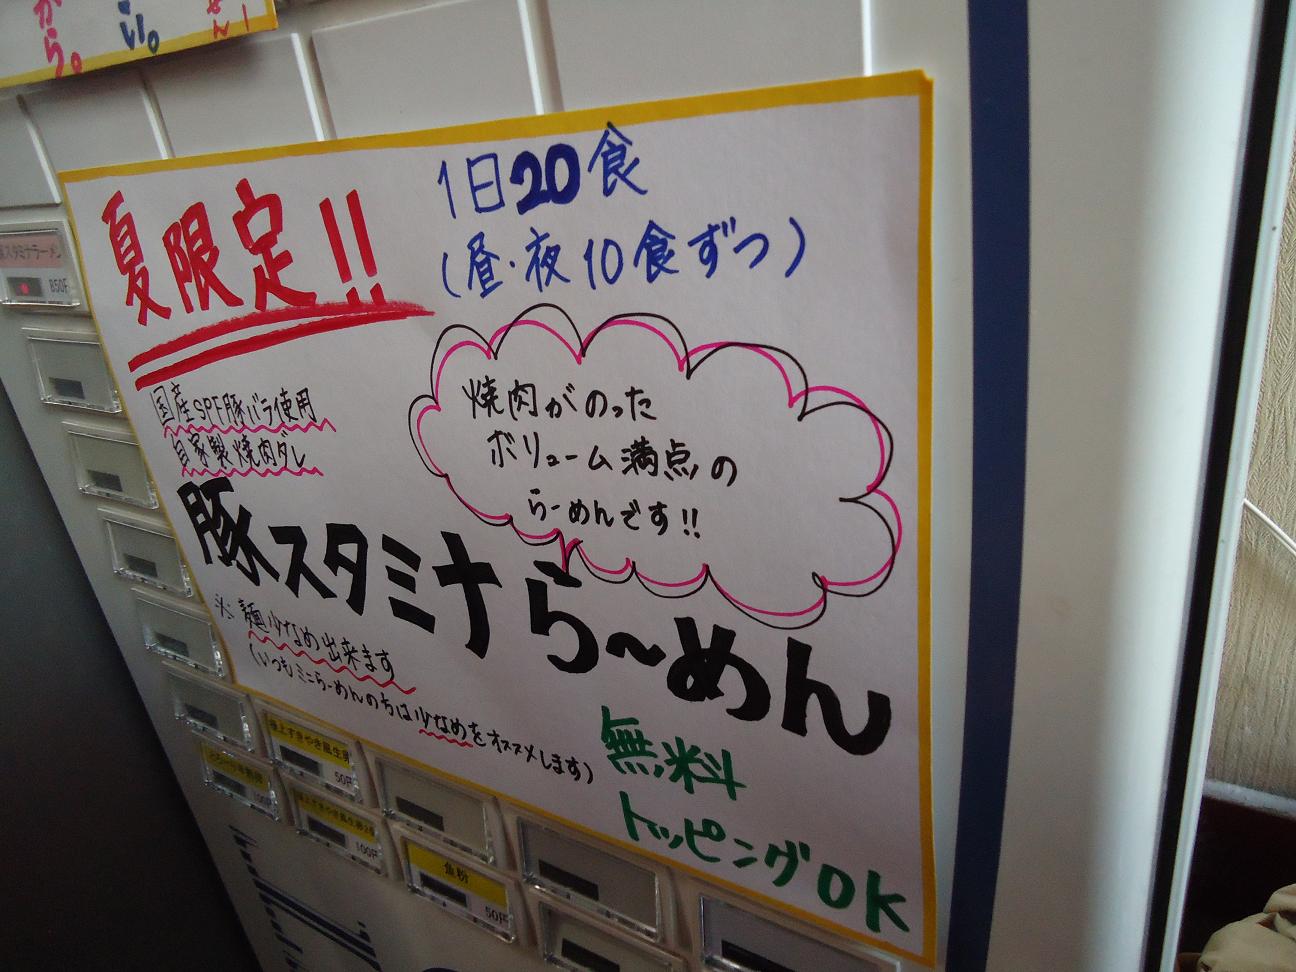 から。
い。
せん!
夏限定!!
1日20食
(昼・夜10食ずつ)
国産SPF豚バラ使用
自家製焼肉ダレ
焼肉がのった
ボリューム満点の
らーめんです!!
豚スタミナら〜めん
※麺少なめ出来ます
(いつもミニらーめんの方は少なめをオススメします)
無料
トッピングOK
豚スタミナラーメン
850円
極上すきやき風生卵
50円
100円
極上すきやき風生卵2個
100円
魚粉
50円